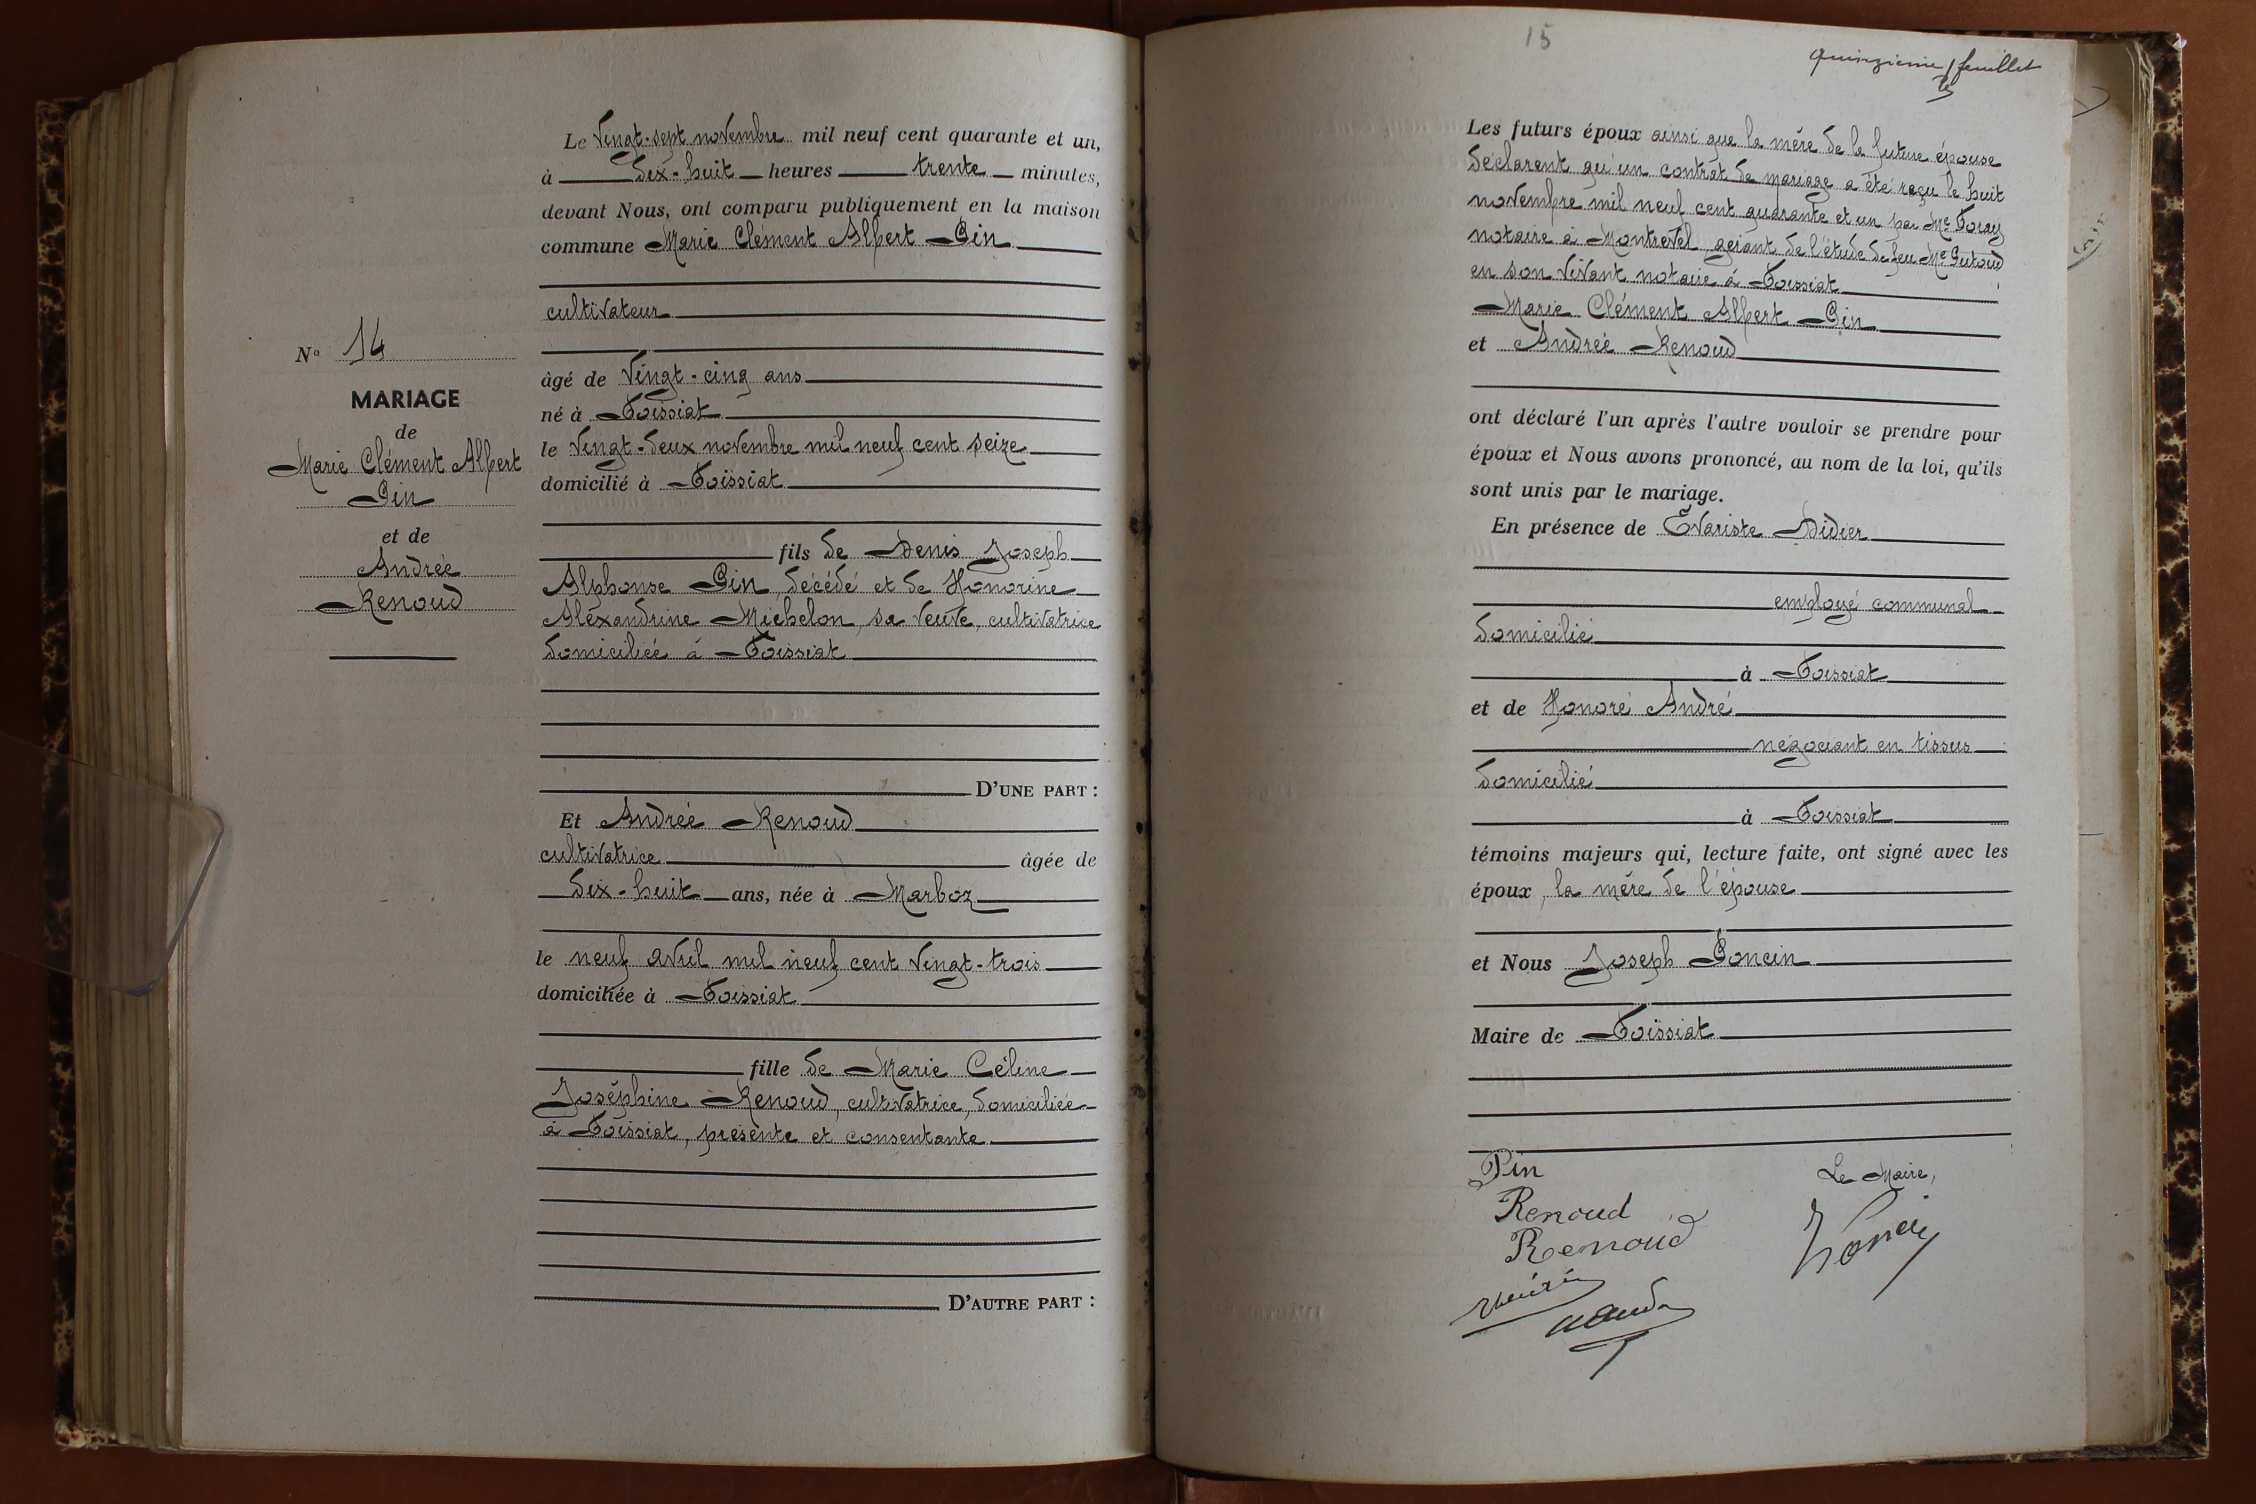 Le vingt-sept novembre mil neuf cent quarante et un,
à dix-huit heures trente minutes,
devant Nous, ont comparu publiquement en la maison
commune Marie Clément Albert Pin
cultivateur
âgé de vingt-cinq ans
né à Foissiat
le vingt-deux novembre mil neuf cent seize
domicilié à Foissiat
fils de Denis Joseph
Alphonse Pin, décédé et de Honorine
Alexandrine Michelon, sa veuve, cultivatrice
domiciliée à Foissiat
D'UNE PART :
Et Andrée Renoud
cultivatrice âgée de
dix-huit ans, née à Marboz
le neuf avril mil neuf cent vingt-trois
domiciliée à Foissiat
fille de Marie Céline
Joséphine Renoud, cultivatrice, domiciliée
à Foissiat, présente et consentante
D'AUTRE PART :
No 14
MARIAGE
de
Marie Clément Albert
Pin
et de
Andrée
Renoud
15
quinzième feuillet
Les futurs époux ainsi que la mère de la future épouse
déclarent qu'un contrat de mariage a été reçu le huit
novembre mil neuf cent quarante et un par Me
notaire à Montrevel, gérant de l'étude de feu Me
en son vivant notaire à Foissiat
Marie Clément Albert Pin
et Andrée Renoud
ont déclaré l'un après l'autre vouloir se prendre pour
époux et Nous avons prononcé, au nom de la loi, qu'ils
sont unis par le mariage.
En présence de Évariste Didier
employé communal
domicilié
à Foissiat
et de Honoré André
négociant en tissus
domicilié
à Foissiat
témoins majeurs qui, lecture faite, ont signé avec les
époux, la mère de l'épouse
et Nous Joseph Poncin
Maire de Foissiat
Pin
Le Maire,
Renoud
Renoud
Poncin